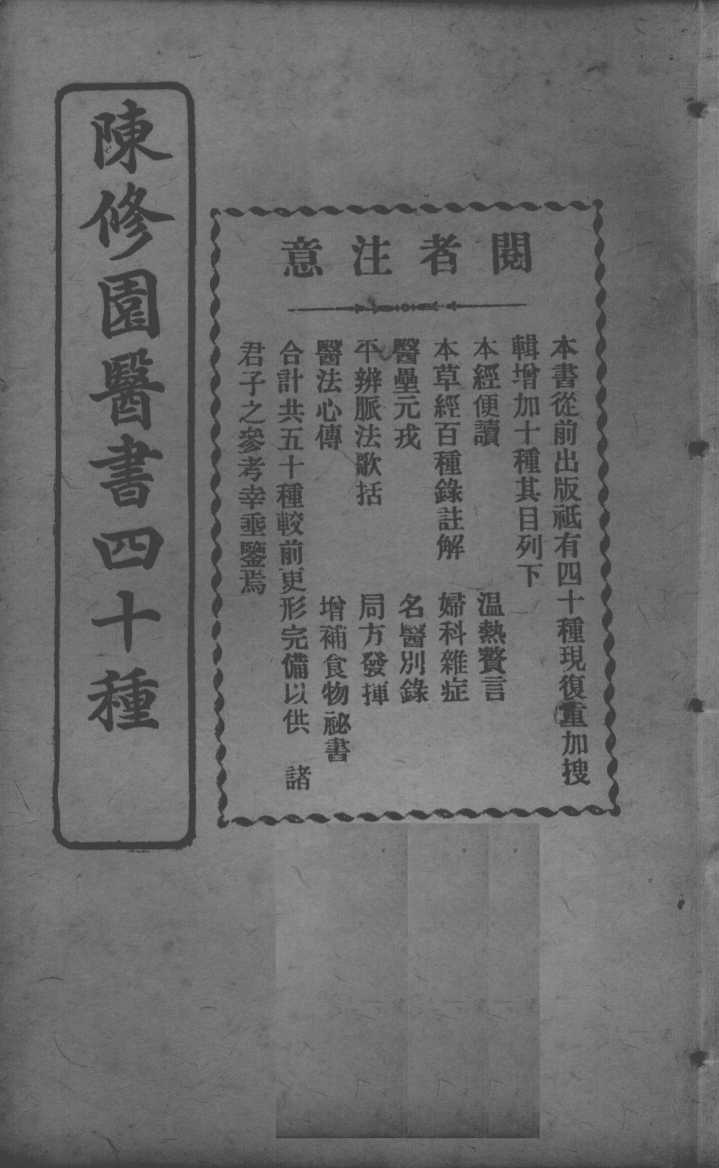 閱者注意
本書從前出版祗有四十種現復重加搜
輯增加十種其目列下
本經便讀　溫熱贅言
本草經百種錄註解　婦科雜症
醫壘元戎　名醫別錄
平辨脈法歌括　局方發揮
醫法心傳　增補食物祕書
合計共五十種較前更形完備以供　諸
君子之參考幸垂鑒焉
陳修園醫書四十種